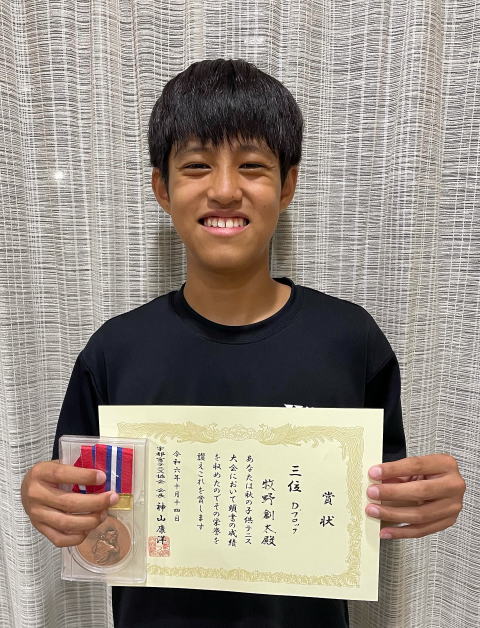 賞状
三位 Dブロック
牧野創太殿
あなたは秋の子供テニス
大会において頭書の成績
を収めたのでその栄誉を
讃えこれを賞します
令和六年十月十四日
宇都宮テニス協会 会長 神山康洋